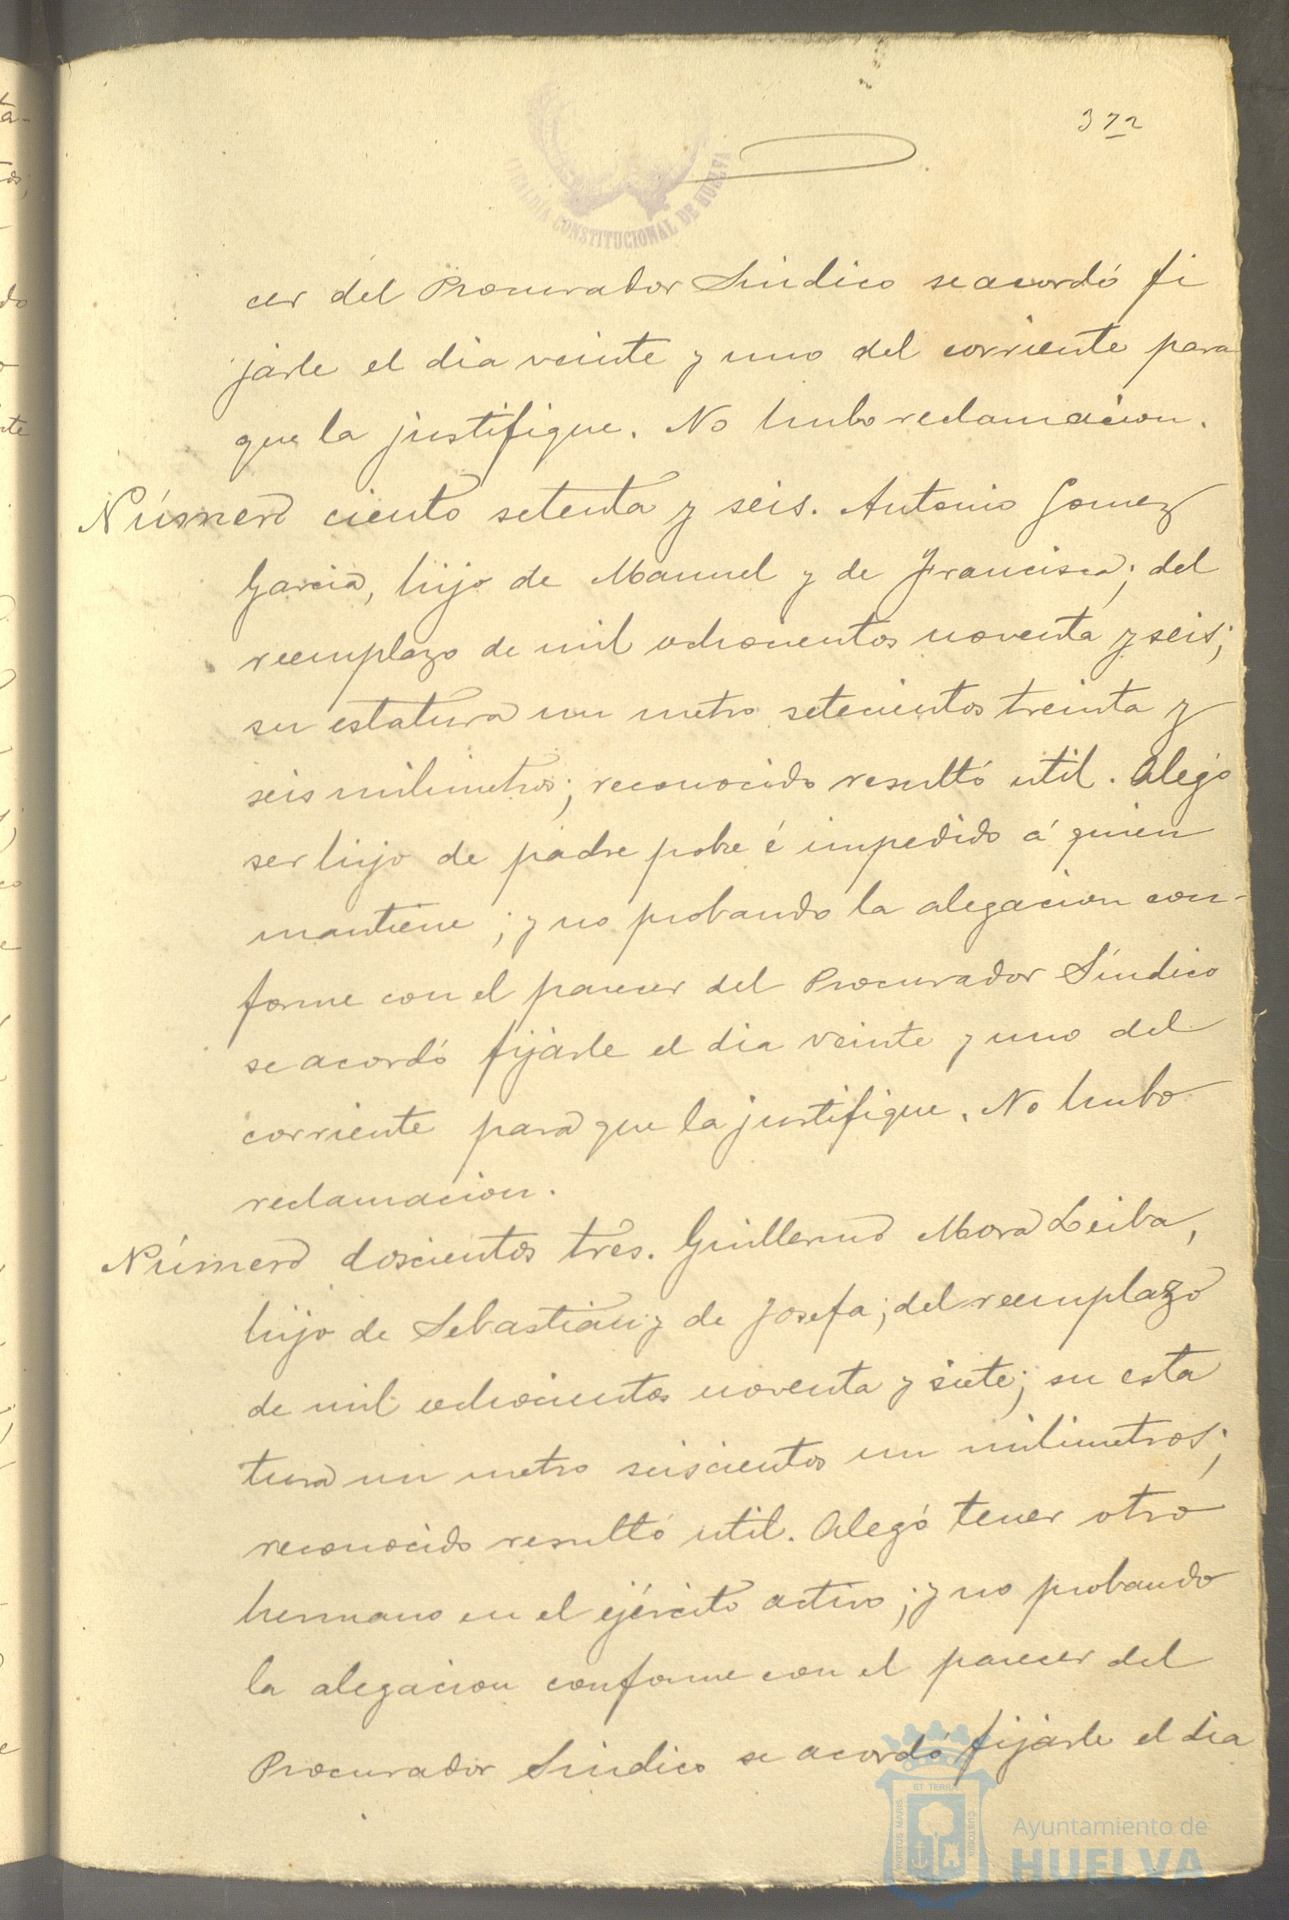 372
ALCALDIA CONSTITUCIONAL DE HUELVA
cer del Procurador Sindico se acordó fi
jarle el dia veinte y uno del corriente para
que la justifique. No hubo reclamacion.
Número ciento setenta y seis. Antonio Gomez
Garcia, hijo de Manuel y de Francisca; del
reemplazo de mil ochocientos noventa y seis;
su estatura un metro setecientos treinta y
seis milimetros; reconocido resultó util. Alegó
ser hijo de padre pobre é impedido á quien
mantiene; y no probando la alegacion con-
forme con el parecer del Procurador Síndico
se acordó fijarle el dia veinte y uno del
corriente para que la justifique. No hubo
reclamacion.
Número doscientos tres. Guillermo Mora Leiba,
hijo de Sebastian y de Josefa; del reemplazo
de mil ochocientos noventa y siete; su esta
tura un metro seiscientos un milimetros;
reconocido resultó util. Alegó tener otro
hermano en el ejército activo; y no probando
la alegacion conforme con el parecer del
Procurador Sindico se acordó fijarle el dia
PORTUS MARIS ET TERRAE CUSTODIA
Ayuntamiento de
HUELVA